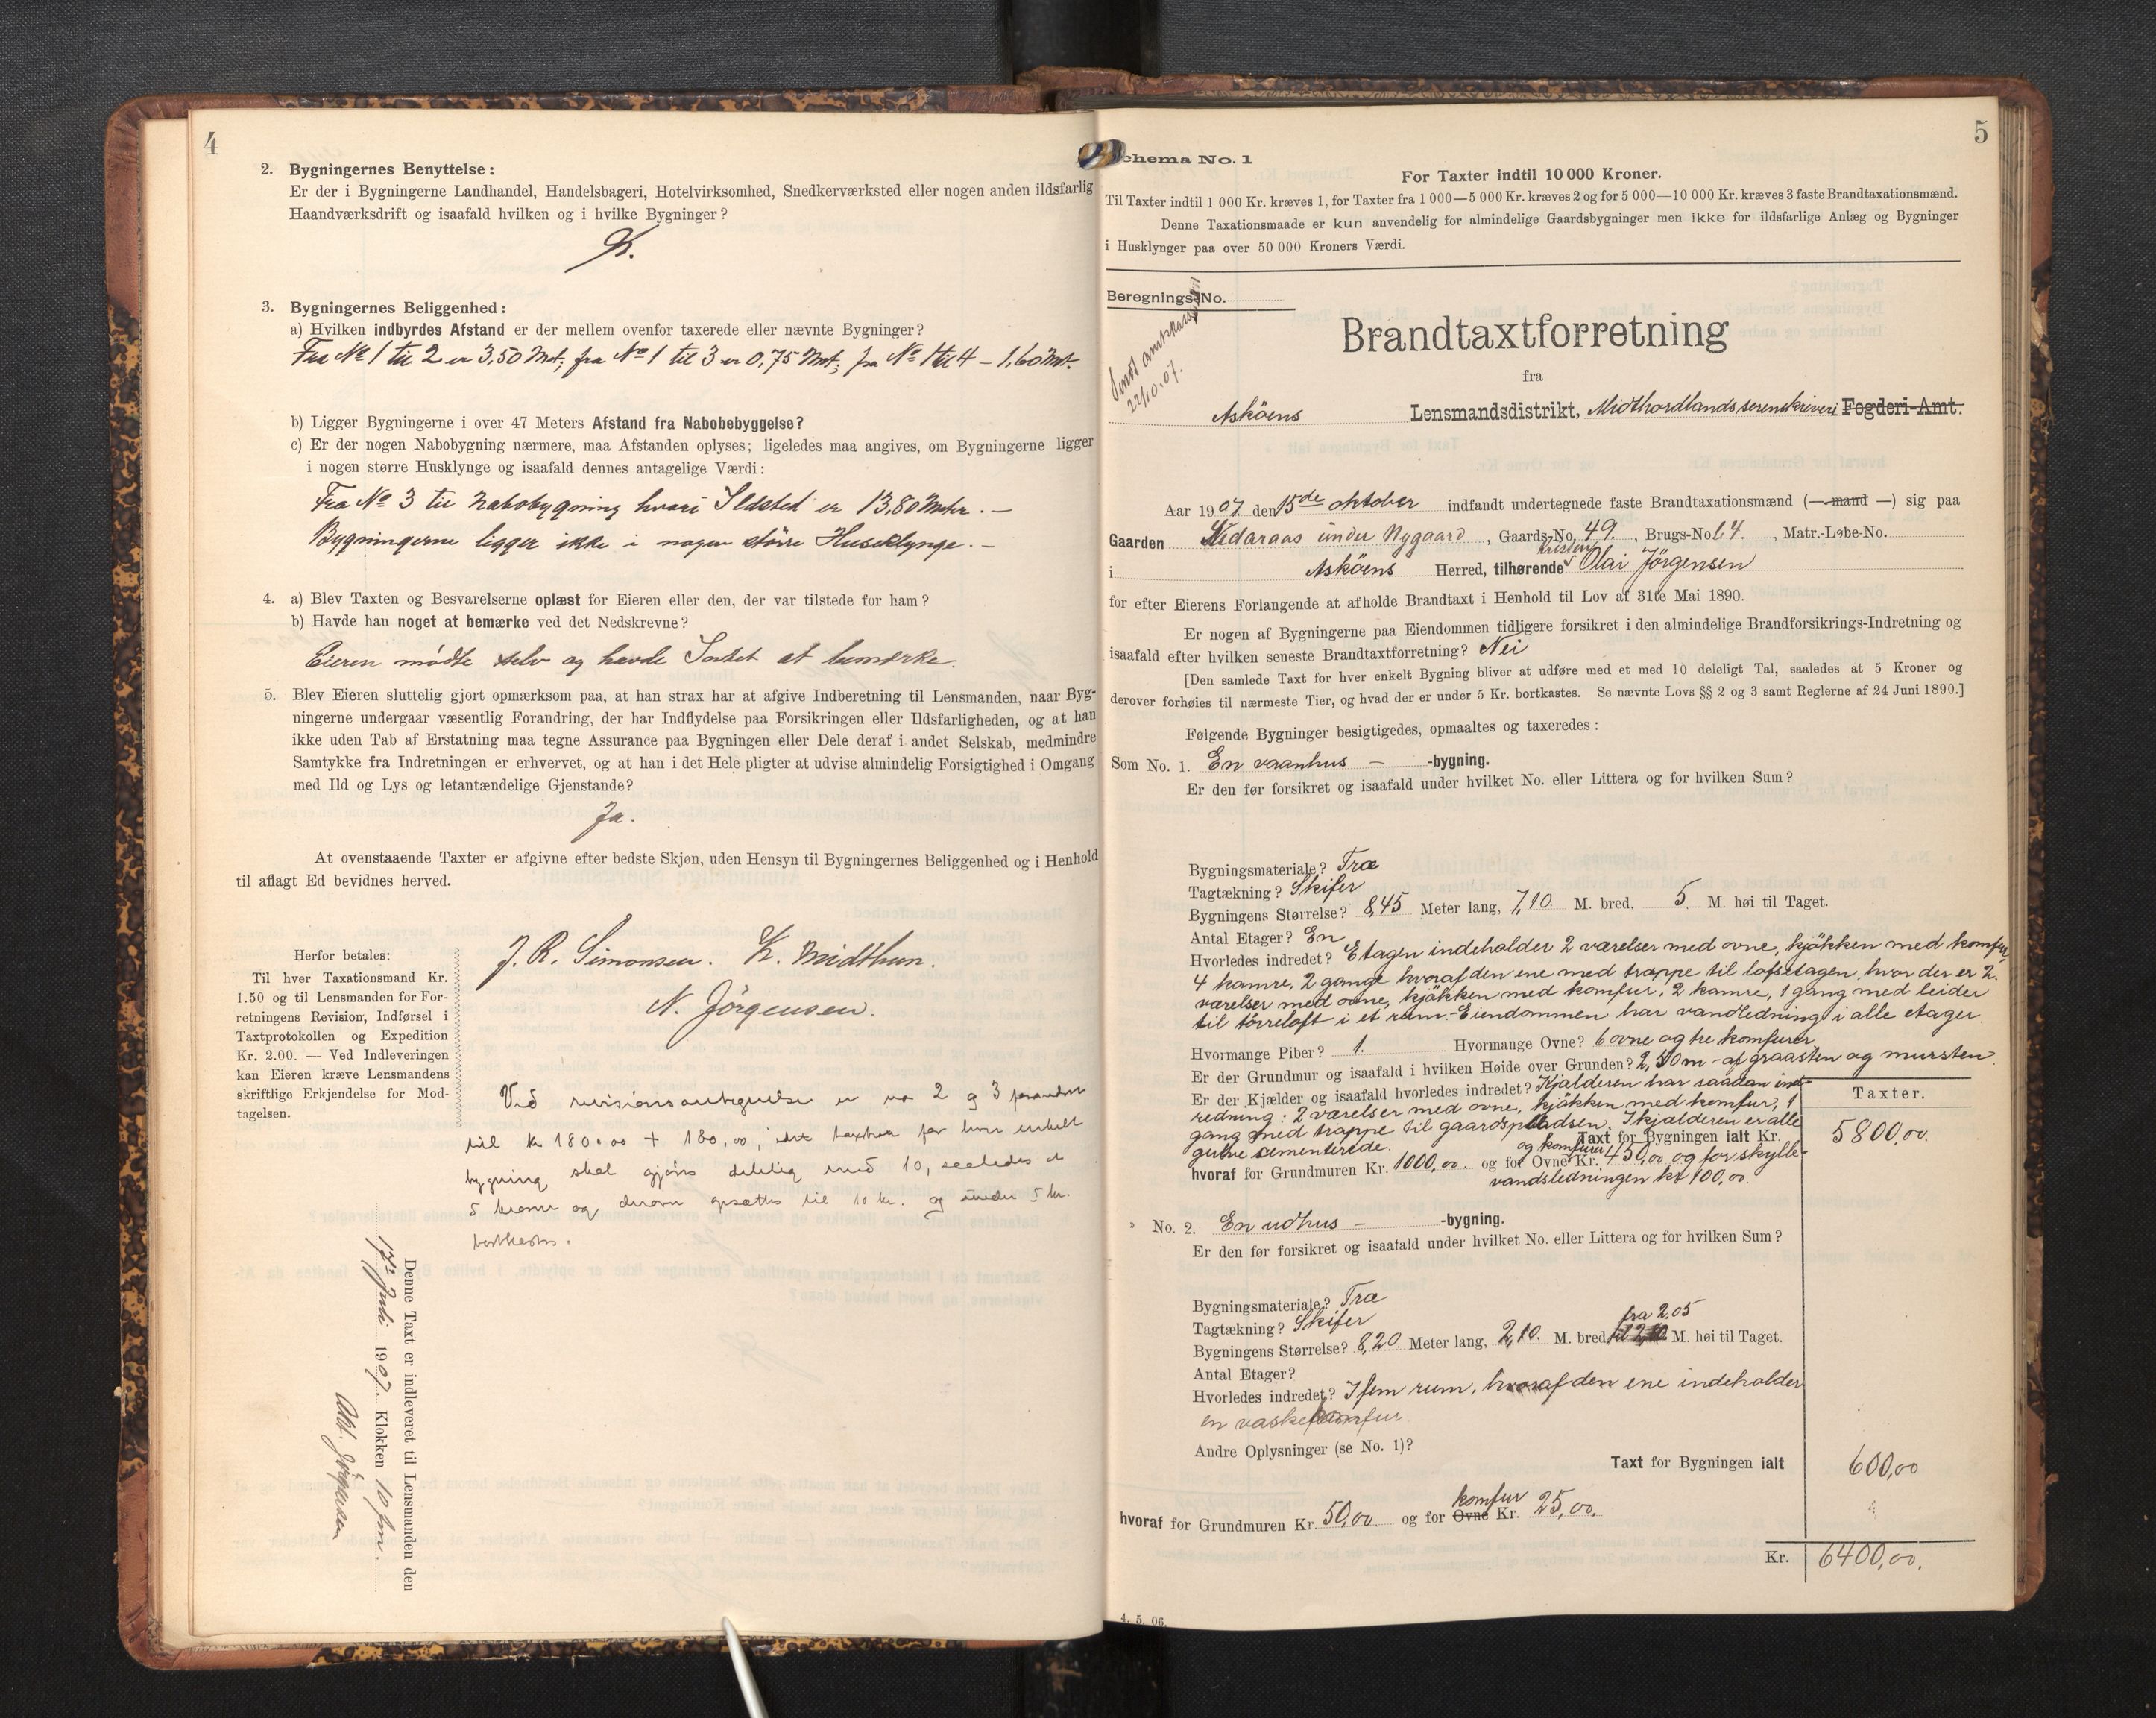 4
2. Bygningernes Benyttelse:
Er der i Bygningerne Landhandel, Handelsbageri, Hotelvirksomhed, Snedkerværksted eller nogen anden ildsfarlig
Haandværksdrift og isaafald hvilken og i hvilke Bygninger?
3. Bygningernes Beliggenhed:
a) Hvilken indbyrdes Afstand er der mellem ovenfor taxerede eller nævnte Bygninger?
Fra No 1 til 2 er 3,50 Met; fra No 1 til 3 er 0,75 Met; fra No 1 til 4 – 1,60 Met.
b) Ligger Bygningerne i over 47 Meters Afstand fra Nabobebyggelse?
c) Er der nogen Nabobygning nærmere, maa Afstanden oplyses; ligeledes maa angives, om Bygningerne ligger
i nogen større Husklynge og isaafald dennes antagelige Værdi:
Fra No 3 til Nabobygning hvori Ildsted er 13,80 Meter. –
Bygningerne ligger ikke i nogen större Huseklynge. –
4. a) Blev Taxten og Besvarelserne oplæst for Eieren eller den, der var tilstede for ham?
b) Havde han noget at bemærke ved det Nedskrevne?
Eieren mödte selv og havde Intet at bemærke.
5. Blev Eieren sluttelig gjort opmærksom paa, at han strax har at afgive Indberetning til Lensmanden, naar Byg-
ningerne undergaar væsentlig Forandring, der har Indflydelse paa Forsikringen eller Ildsfarligheden, og at han
ikke uden Tab af Erstatning maa tegne Assurance paa Bygningen eller Dele deraf i andet Selskab, medmindre
Samtykke fra Indretningen er erhvervet, og at han i det Hele pligter at udvise almindelig Forsigtighed i Omgang
med Ild og Lys og letantændelige Gjenstande?
Ja.
At ovenstaaende Taxter er afgivne efter bedste Skjøn, uden Hensyn til Bygningernes Beliggenhed og i Henhold
til aflagt Ed bevidnes herved.
J. R. Simonsen. K. Midthun.
N. Jörgensen.
Herfor betales:
Til hver Taxationsmand Kr.
1.50 og til Lensmanden for For-
retningens Revision, Indførsel i
Taxtprotokollen og Expedition
Kr. 2.00. — Ved Indleveringen
kan Eieren kræve Lensmandens
skriftlige Erkjendelse for Mod-
tagelsen.
Ved revisionsantegnelse er no 2 og 3 forandret
til kr 180,00 + 180,00, idet taxten for hver enkelt
bygning skal gjøres delelig med 10, saaledes at
5 kroner og derover opsættes til 10 kr. og under 5 kr.
bortkastes.
Denne Taxt er indleveret til Lensmanden den
17de Juli 1907 Klokken 10 fm.
Jörgensen
5
Schema No. 1
For Taxter indtil 10 000 Kroner.
Til Taxter indtil 1 000 Kr. kræves 1, for Taxter fra 1 000—5 000 Kr. kræves 2 og for 5 000—10 000 Kr. kræves 3 faste Brandtaxationsmænd.
Denne Taxationsmaade er kun anvendelig for almindelige Gaardsbygninger men ikke for ildsfarlige Anlæg og Bygninger
i Husklynger paa over 50 000 Kroners Værdi.
Beregnings-No.
Sendt
22/10.07.
Brandtaxtforretning
fra
Asköens Lensmandsdistrikt, Midthordlands sorenskriveri Fogderi-Amt.
Aar 1907 den 15de oktober indfandt undertegnede faste Brandtaxationsmænd (— mand —) sig paa
Gaarden Kedaraas under Nygaard, Gaards-No. 49., Brugs-No. 64., Matr.-Løbe-No.
Kristen
i Asköens Herred, tilhørende Olai Jörgensen
for efter Eierens Forlangende at afholde Brandtaxt i Henhold til Lov af 31te Mai 1890.
Er nogen af Bygningerne paa Eiendommen tidligere forsikret i den almindelige Brandforsikrings-Indretning og
isaafald efter hvilken seneste Brandtaxtforretning? Nei
[Den samlede Taxt for hver enkelt Bygning bliver at udføre med et med 10 deleligt Tal, saaledes at 5 Kroner og
derover forhøies til nærmeste Tier, og hvad der er under 5 Kr. bortkastes. Se nævnte Lovs §§ 2 og 3 samt Reglerne af 24 Juni 1890.]
Følgende Bygninger besigtigedes, opmaaltes og taxeredes:
Som No. 1. En vaanhus – -bygning.
Er den før forsikret og isaafald under hvilket No. eller Littera og for hvilken Sum?
Bygningsmateriale? Træ
Tagtækning? Skifer
Bygningens Størrelse? 8,45 Meter lang, 7,10 M. bred, 5 M. høi til Taget.
Antal Etager? En
Hvorledes indredet? Etagen indeholder 2 værelser med ovne, kjökken med komfur,
4 kamre, 2 gange hvoraf den ene med trappe til loftsetagen, hvor der er 2
værelser med ovne, kjökken med komfur, 2 kamre, 1 gang med leider
til törreloft i et rum. – Eiendommen har vandledning i alle etager
Hvormange Piber? 1. Hvormange Ovne? 6 ovne og tre komfurer
Er der Grundmur og isaafald i hvilken Høide over Grunden? 2,40 m – af graasten og mursten
Er der Kjælder og isaafald hvorledes indredet? Kjælderen har saadan ind-
redning: 2 værelser med ovne, kjökken med komfur, 1
gang med trappe til gaardspladsen. I kjælderen er alle
gulve cementerede.
Taxter.
Taxt for Bygningen ialt Kr. 5800,00.
og komfurer
hvoraf for Grundmuren Kr. 1000,00. og for Ovne Kr. 450,00 og for skylle-
vandsledningen kr 100,00.
No. 2. En udhus – -bygning.
Er den før forsikret og isaafald under hvilket No. eller Littera og for hvilken Sum?
Bygningsmateriale? Træ
Tagtækning? Skifer
fra 2,05
Bygningens Størrelse? 8,20. Meter lang, 2,10. M. bred, til M. høi til Taget.
Antal Etager?
Hvorledes indredet? I fem rum, hvoraf den ene indeholder
en vaskekomfur
Andre Oplysninger (se No. 1)?
Taxt for Bygningen ialt 600,00
komfur
hvoraf for Grundmuren Kr. 50,00. og for Ovne Kr. 25,00.
Kr. 6400,00.
4. 5. 06.